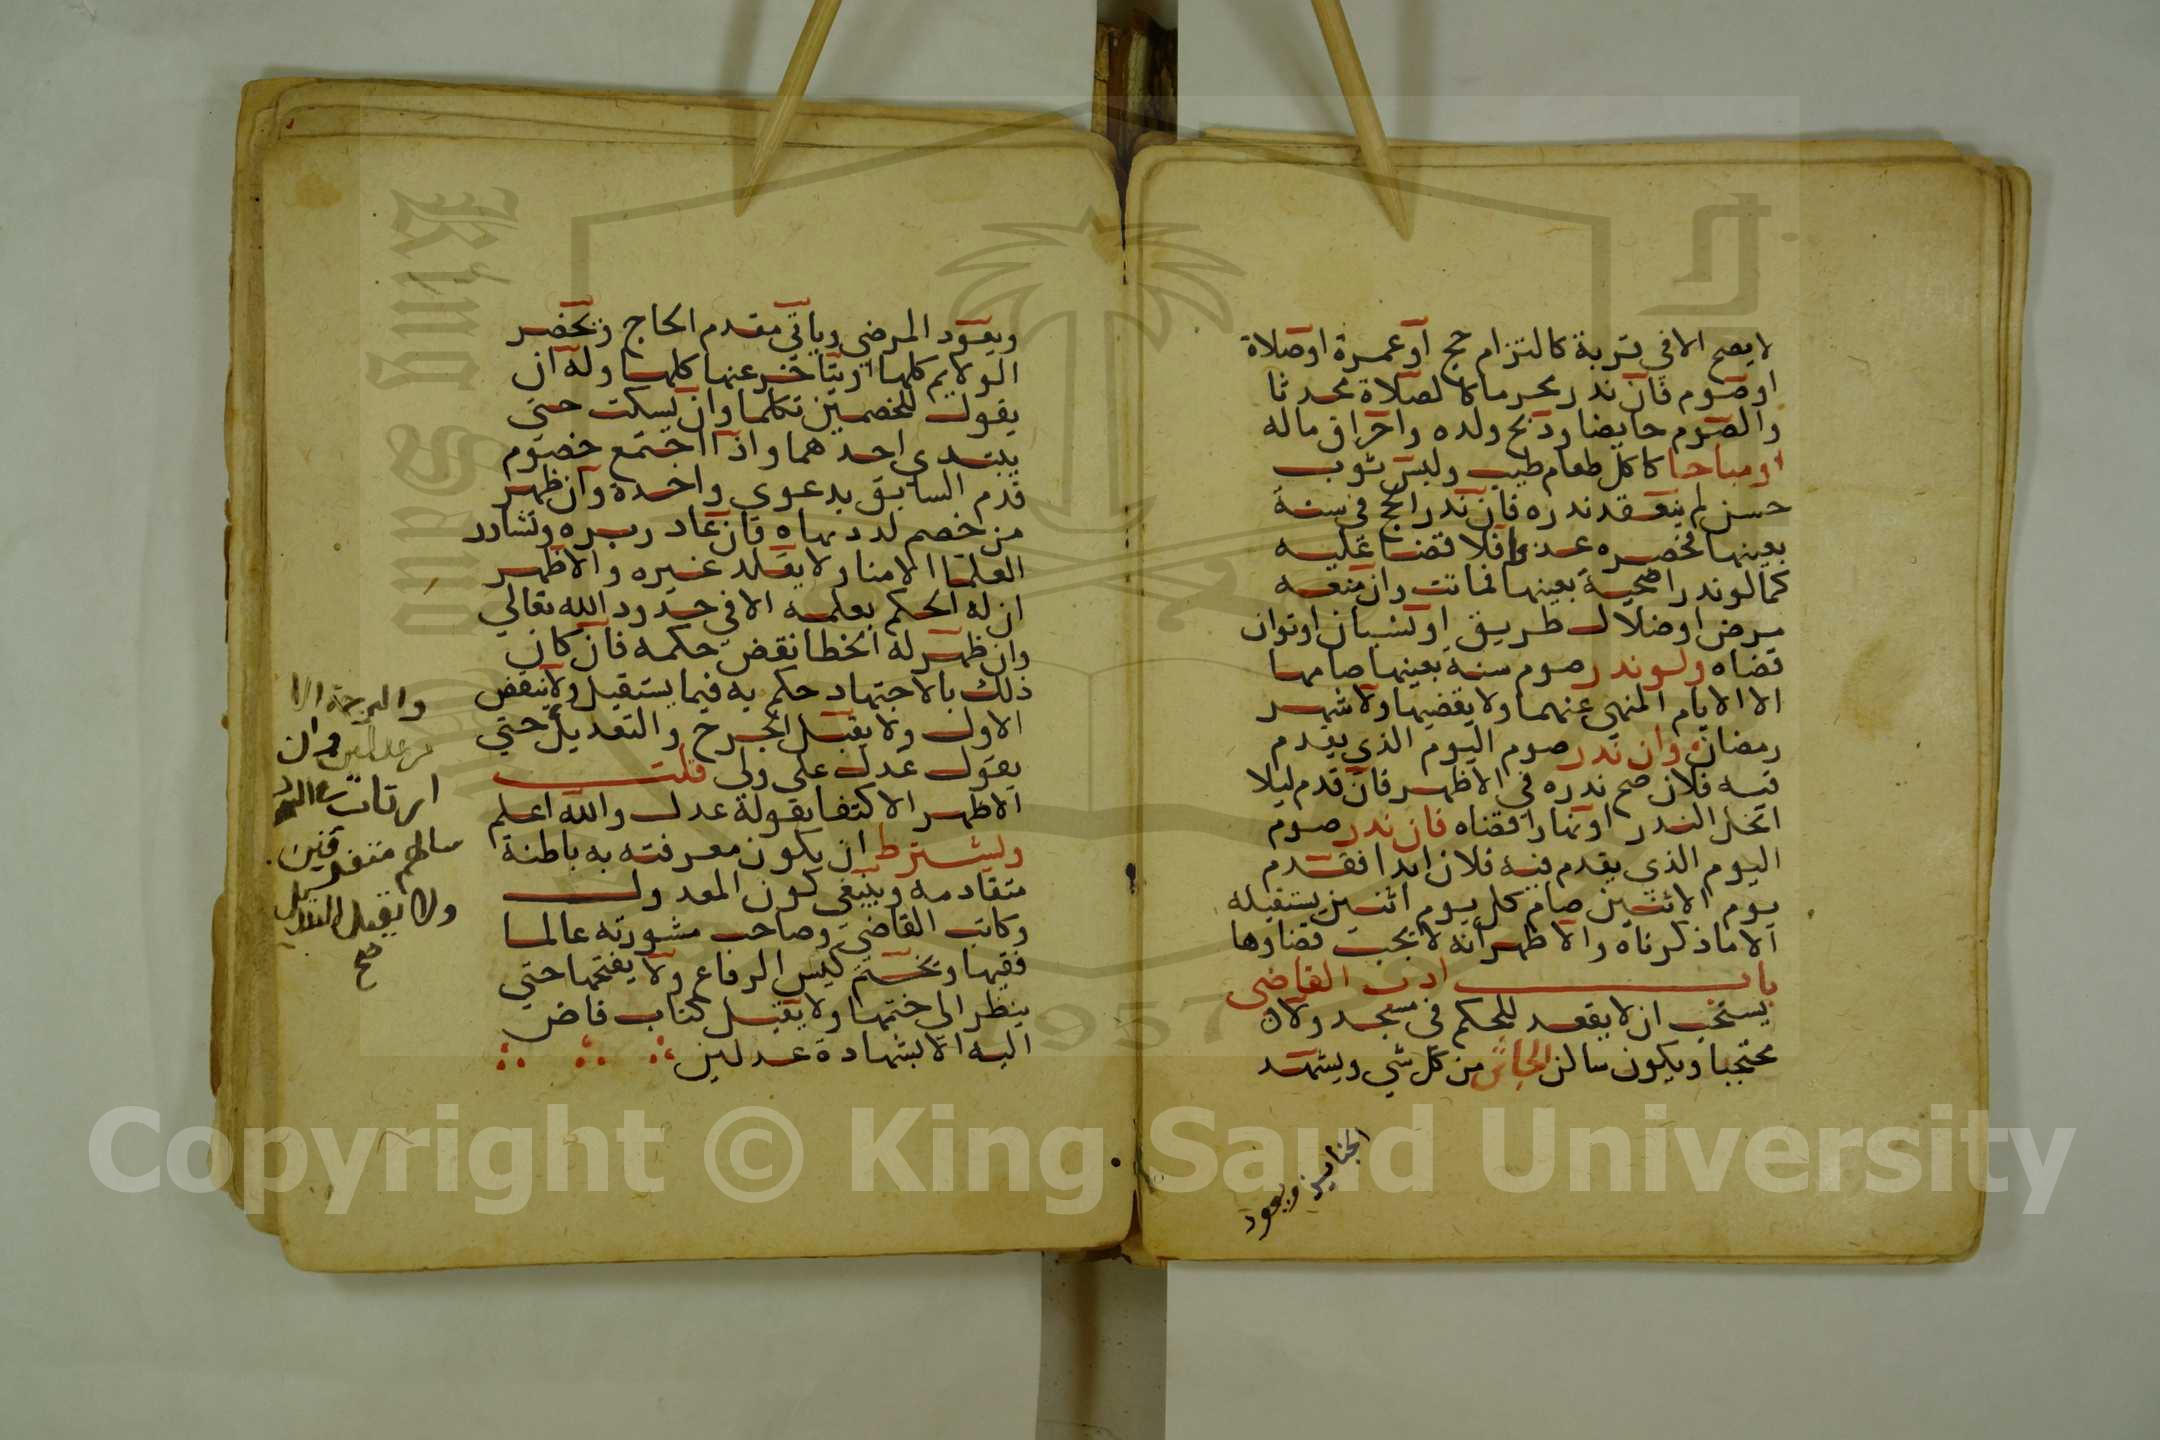 لا يصح الا في قربة كالتزام حج أو عمرة او صلاة
او صوم فان نذر محرما كالصلاة محدثا
والصوم حايضا وذبح ولده واحراق ماله
او مباحا كاكل طعام طيب ولبس ثوب
حسن لم ينعقد نذره فان نذر الحج في سنة
بعينها فحصره عدو فلا قضا عليه
كما لو نذر اضحية بعينها فماتت وان منعه
مرض او ضلال طريق او نسيان او توان
قضاه ولو نذر صوم سنة بعينها صامها
الا الايام المنهي عنهما ولا يقضيها ولا شهر
رمضان وان نذر صوم اليوم الذي يقدم
فيه فلان صح نذره في الاظهر فان قدم ليلا
انحل النذر او نهارا قضاه فان نذر صوم
اليوم الذي يقدم فيه فلان ابدا فقدم
يوم الاثنين صام كل يوم اثنين يستقبله
الا ما ذكرناه والاظهر أنه لا يجب قضاوها
باب ادب القاضي
يستحب ان لا يقعد للحكم في مسجد ولا
محتجبا ويكون ساكن الجاش من كل شي ويشهد
الجنايز ويعود
ويعود المرضي وياتي مقدم الحاج ويحضر
الولايم كلها او يتاخر عنها كلها وله ان
يقول للخصمين تكلما وان يسكت حتي
يبتدي احدهما واذا اجتمع خصوم
قدم السابق بدعوي واحدة وان ظهر
من خصم لدد نهاه فان عاد زبره وتشاور
العلما الامنا ولا يقلد غيره والاظهر
ان له الحكم بعلمه الا في حدود الله تعالي
وان ظهر له الخطا نقض حكمه فان كان
ذلك بالاجتهاد حكم به فيما يستقبل ولا ينقض
الاول ولا يقبل الجرح والتعديل حتي
يقول عدل علي ولي قلت
الاظهر الاكتفا بقوله عدل والله اعلم
ويشترط ان يكون معرفته به باطنة
متقادمه وينبغي كون المعدول
وكاتب القاضي وصاحب مشورته عالما
فقيها ويختم كيس الرفاع ولا يفتحها حتي
ينظر الي ختمها ولا يقبل كتاب قاض
اليه الا بشهادة عدلين
والترجمة الا
من عدلين وان
ارتاب
سالهم متفرقين
ولا يقبل التعديل
صح
Copyright © King Saud University
King Saud
1957